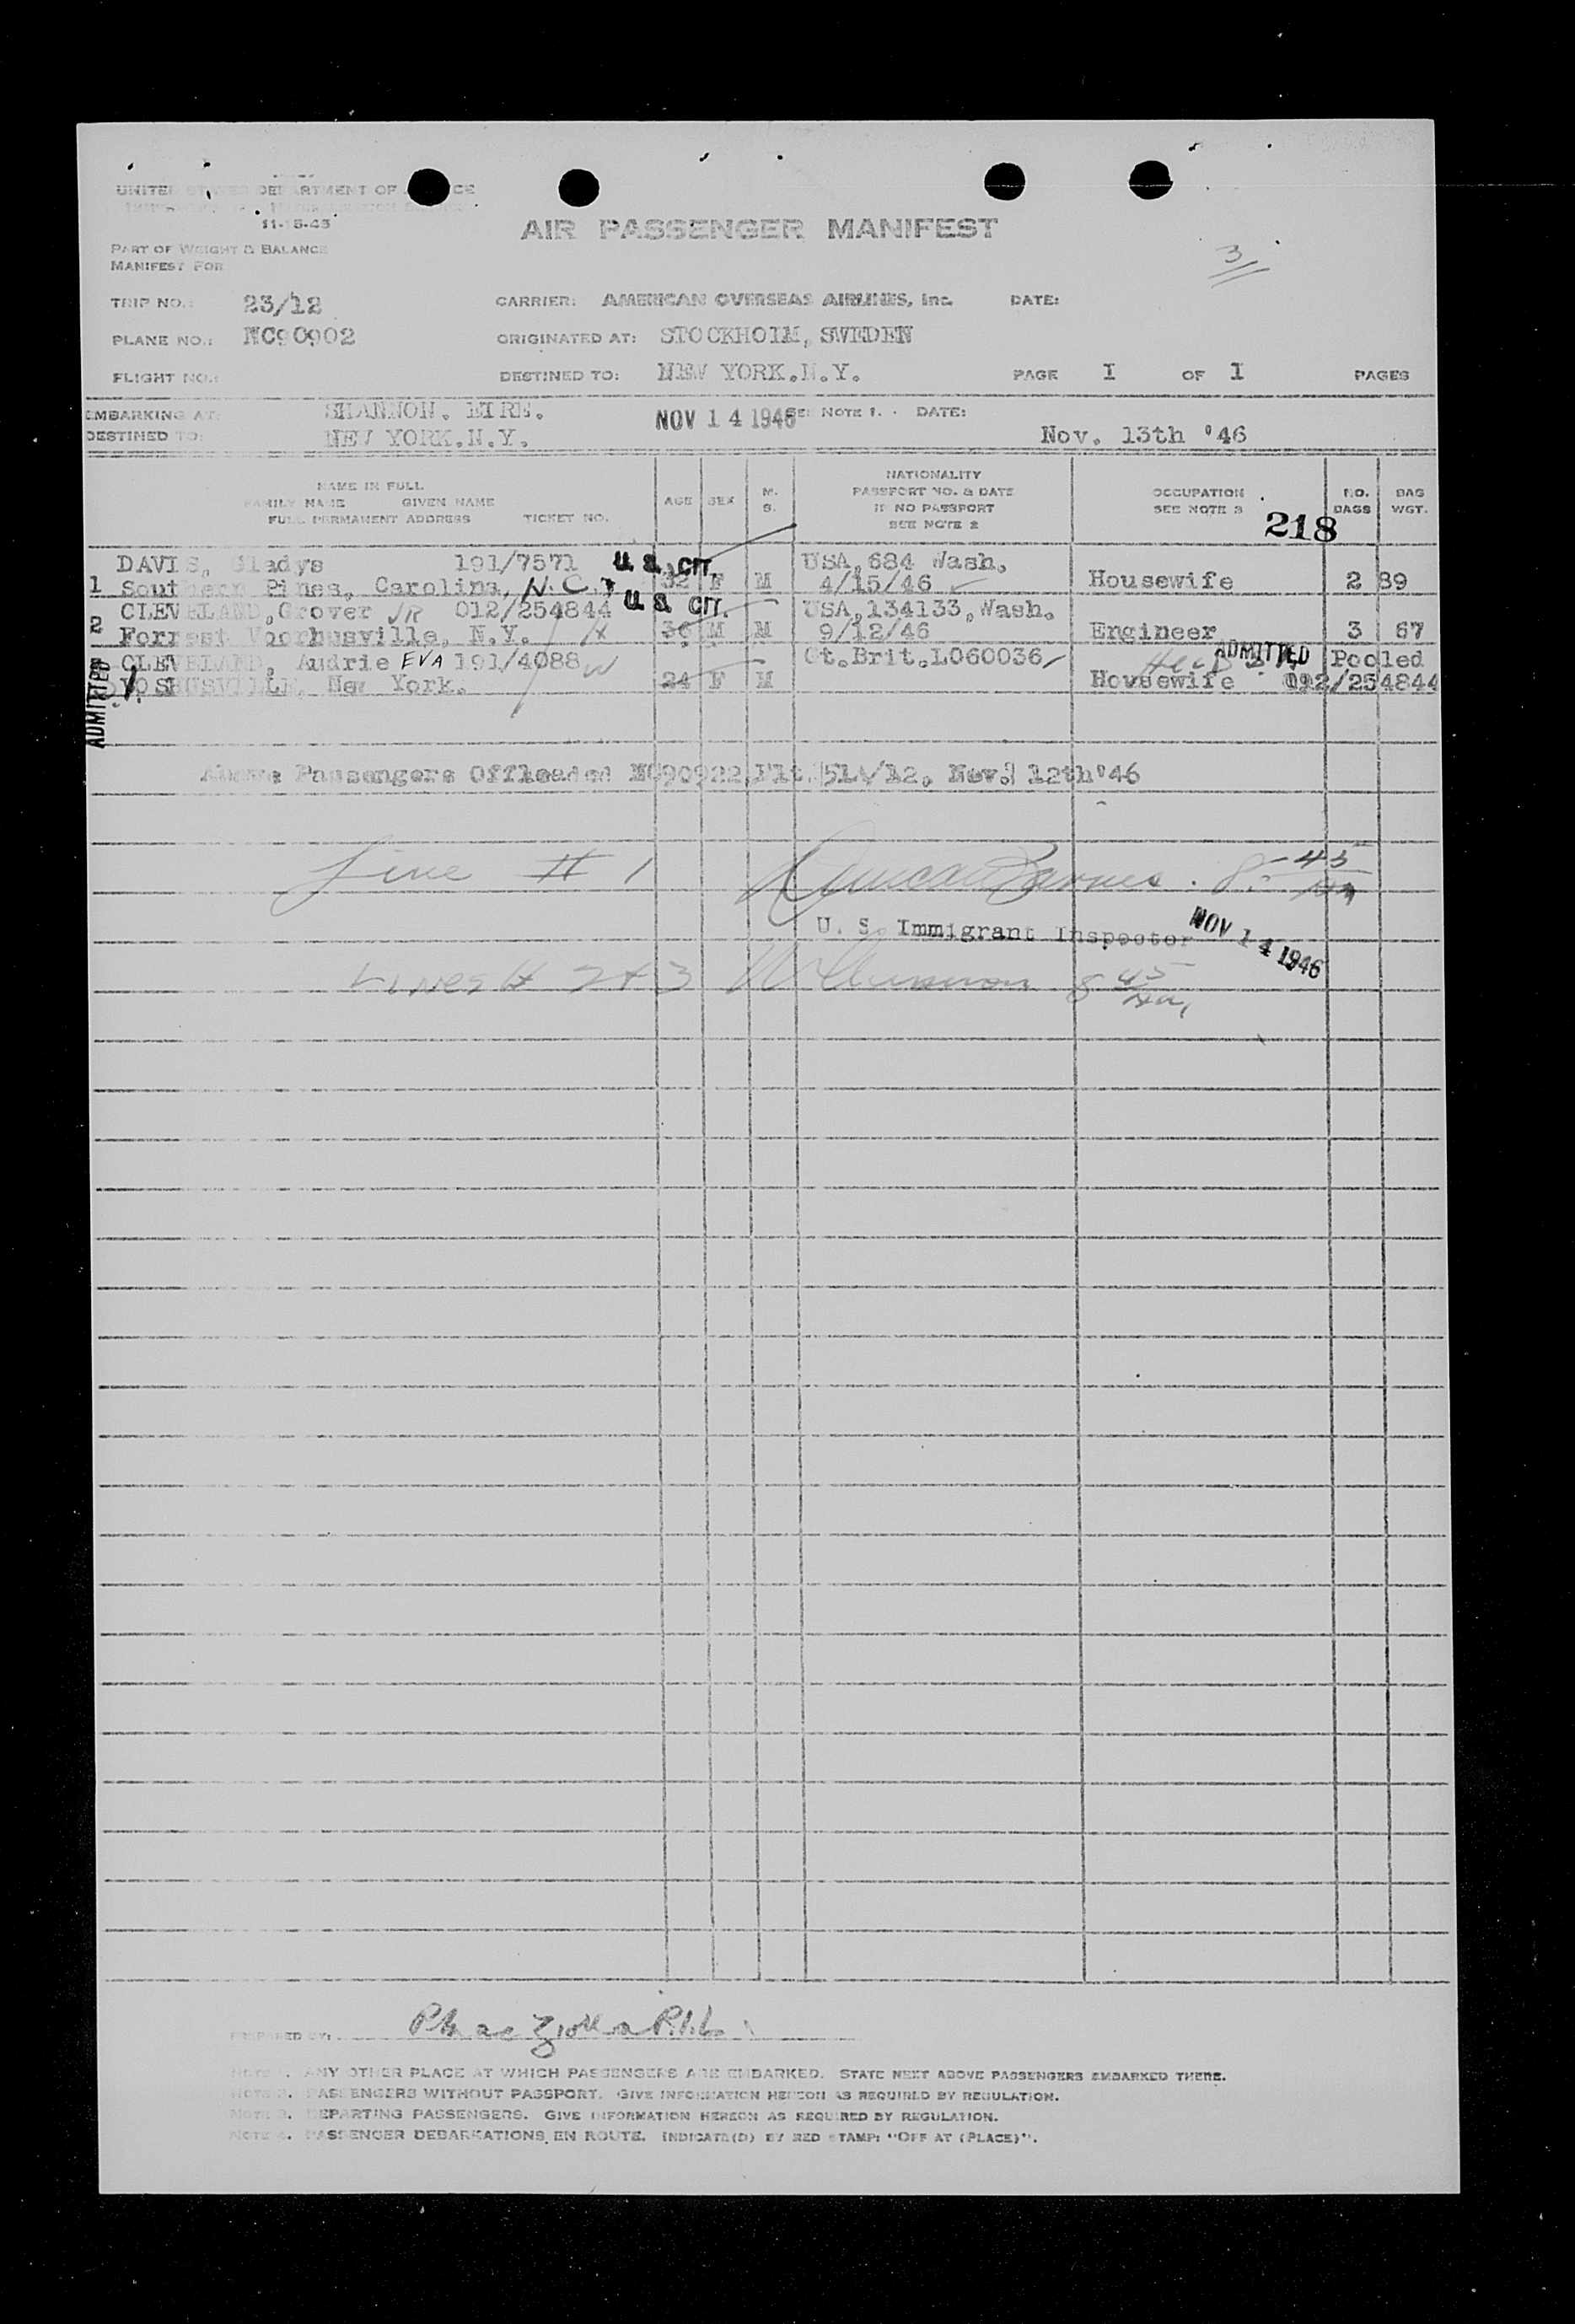 UNITED STATES DEPARTMENT OF JUSTICE
11-15-45
AIR PASSENGER MANIFEST
PART OF WEIGHT & BALANCE
MANIFEST FOR
3
TRIP NO.: 23/12 CARRIER: AMERICAN OVERSEAS AIRLINES, Inc. DATE:
PLANE NO.: NC90902 ORIGINATED AT: STOCKHOLM, SWEDEN
FLIGHT NO.: DESTINED TO: NEW YORK.N.Y. PAGE 1 OF 1 PAGES
EMBARKING AT: SHANNON. EIRE. NOV 14 1946 SEE NOTE 1. DATE:
DESTINED TO: NEW YORK.N.Y. Nov. 13th '46
NAME IN FULL
FAMILY NAME GIVEN NAME
FULL PERMANENT ADDRESS TICKET NO.
AGE SEX M. S.
NATIONALITY
PASSPORT NO. & DATE
IF NO PASSPORT
SEE NOTE 2
OCCUPATION
SEE NOTE 3
NO. BAGS
BAG WGT.
218
DAVIS, Gladys 191/7571 U.S. CIT. USA, 684 Wash.
1 Southern Pines, Carolina, N.C. 32 F M 4/15/46 Housewife 2 39
CLEVELAND, Grover JR 012/254844 U.S. CIT. USA, 134133, Wash.
2 Forrest Voorhusville, N.Y. 36 M M 9/12/46 Engineer 3 67
CLEVELAND, Audrie EVA 191/4088 W Gt.Brit.L060036 ADMITTED Pooled
New York. 24 F M Housewife 012/254844
ADMITTED
Above Passengers Offloaded NC90922 Flt. 51A/12, Nov. 12th '46
Line # 1 8:45
U. S. Immigrant Inspector NOV 14 1946
Lines # 2 + 3 8 45
PREPARED BY:
NOTE 1. ANY OTHER PLACE AT WHICH PASSENGERS ARE EMBARKED. STATE NEXT ABOVE PASSENGERS EMBARKED THERE.
NOTE 2. PASSENGERS WITHOUT PASSPORT. GIVE INFORMATION HEREON AS REQUIRED BY REGULATION.
NOTE 3. DEPARTING PASSENGERS. GIVE INFORMATION HEREON AS REQUIRED BY REGULATION.
NOTE 4. PASSENGER DEBARKATIONS EN ROUTE. INDICATE(D) BY RED STAMP: "OFF AT (PLACE)".